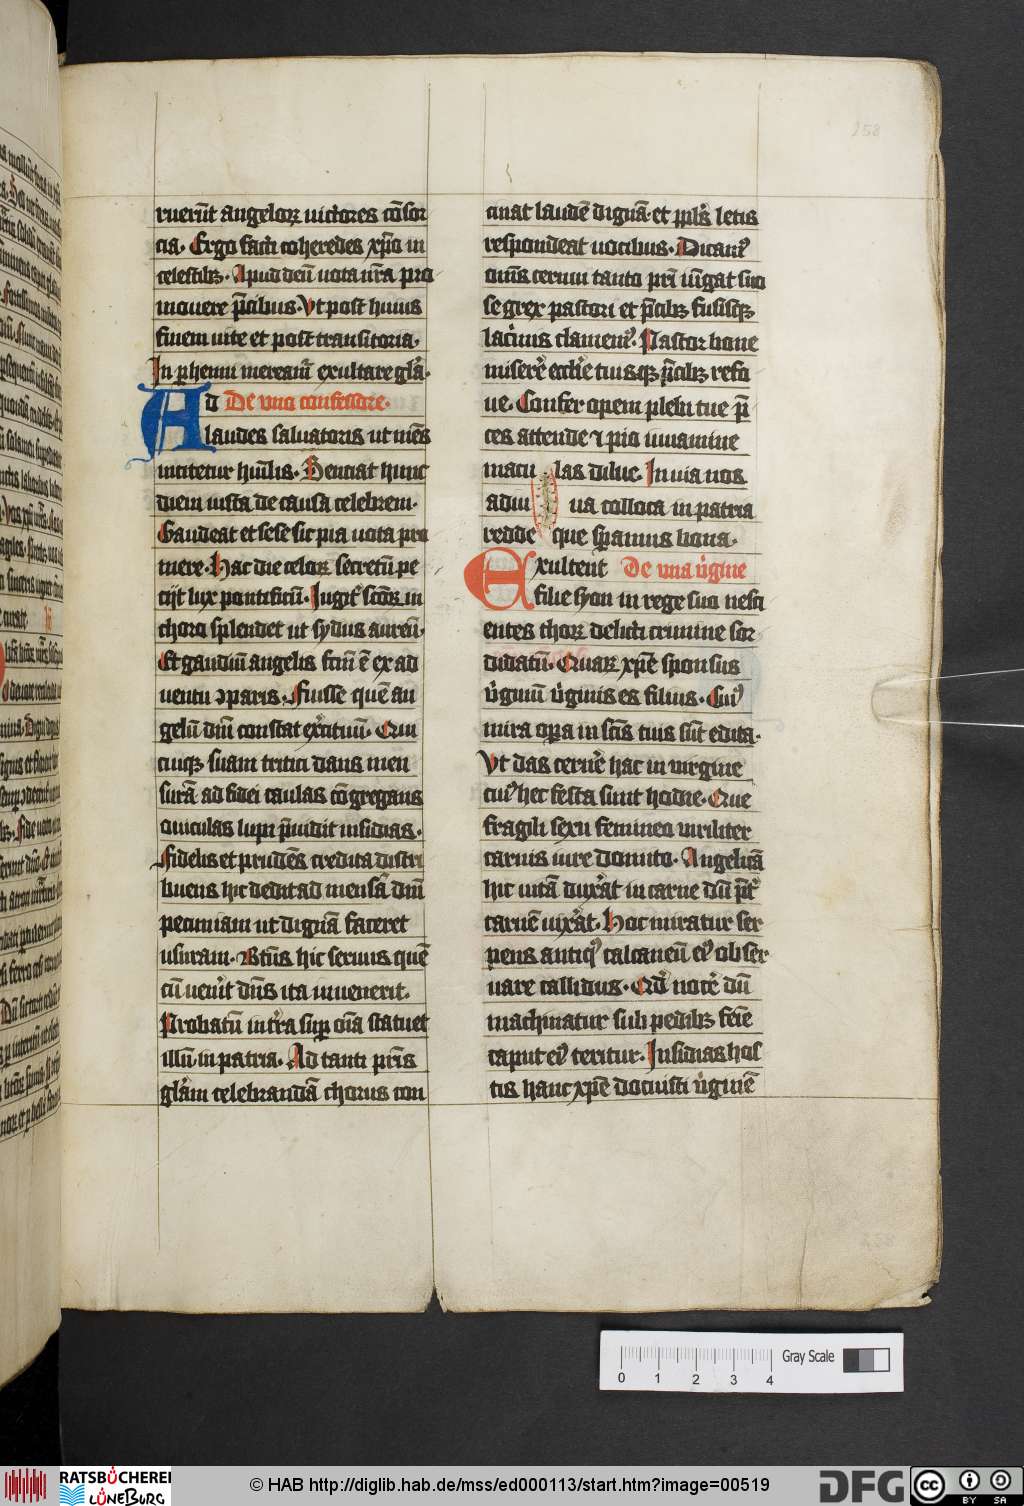 ruerūt angeloꝝ uictores cōsor
cia. Ergo facti coheredes xp̄o in
celestibꝫ. Apud deū uota nr̄a pro
mouere p̄cibus. Vt post huius
finem uite et post transitoria.
In perhenni mereamr̄ exultare gl̄a.
Ad De uno confessore.
laudes saluatoris ut mēs
incitetur hūilis. Senciat hunc
diem iusta de causa celebrem.
Gaudeat et sese sic pia uota pro
mere. Hac die celoꝝ secretū pe
cijt lux pontificū. Iugit̄ scōꝝ in
choro splendet ut sydus aureū.
Et gaudiū angelis fc̄m ē ex ad
uentu ꝯparis. Fuisse quē an
gelū dn̄i constat exercituū. Qui
cuiqꝫ suam tritici dans men
surā ad fidei caulas cōgregans
ouiculas lupi p̄uidit insidias.
Fidelis et prudēs credita distri
buens hic dedit ad mensā dn̄i
pecuniam ut dignā faceret
usuram. Btūs hic seruus quē
cū uen̄it dn̄s ita inuenerit.
Probatū int̄ra suꝑ oīa statuet
illū in patria. Ad tanti pr̄is
gl̄am celebrandā chorus con
cinat laudē dignā. et ppl̄s letis
respondeat uocibus. Dicamꝰ
ouīs cernui tanto pr̄i iūgat suo
se grex pastori et p̄cibꝫ fusisqꝫ
lacrimis clamemꝰ. Pastor bone
miserē eccl̄ie tuisqꝫ p̄cibꝫ refo
ue. Confer opem plebi tue p̄
ces attende ⁊ pio iuuamine
macu las dilue. In uia nos
adiu ua colloca in patria
redde que speramus bona.
Exultent De una uirgine
filie syon in rege suo nesci
entes thoꝝ delicti crimine sor
didatū. Quaꝝ xp̄e sponsus
uirginū uirginis es filius. Cuiꝰ
mira opera in scīs tuis sūt edita.
Vt das cernere hac in uirgine
cuiꝰ hec festa sunt hodie. Que
fragili sexu femineo uiriliter
carnis iure domito. Angelicā
hic uitā duxerat in carne dū pret̄
carnē uixerat. Hoc miratur ser
pens antiqꝰ calcaneū eiꝰ obser
uare callidus. Qd̄ nocere dū
machinatur sub pedibꝫ femīe
caput eiꝰ teritur. Insidias hos
tis hanc xp̄e docuisti uirginē
158
Gray Scale
0 1 2 3 4
RATSBÜCHEREI
LÜNEBURG
© HAB http://diglib.hab.de/mss/ed000113/start.htm?image=00519
DFG
cc BY SA